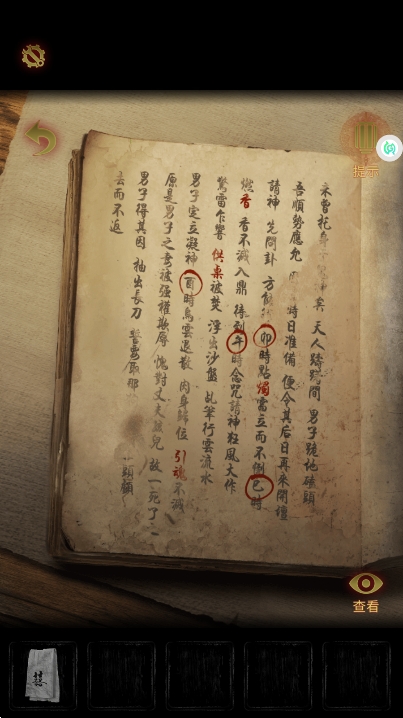 提示
未曾托身 矣 天人躊躇間 男子跪地磕頭
吾順勢應允 時日准備 便令其后日再來開壇
請神 先問卦 方 卯時點燭 當立而不倒 巳時
燃香 香不滅入鼎 待到午時念咒請神 狂風大作
驚雷乍響 供桌被焚 浮出沙盤 乩筆行雲流水
男子定立凝神 酉時烏雲退散 肉身歸位 引魂不滅
原是男子之妻被強權欺辱 愧對丈夫孩兒 故一死了
男子得其因 抽出長刀 誓要取那 頭顱
去而不返
查看